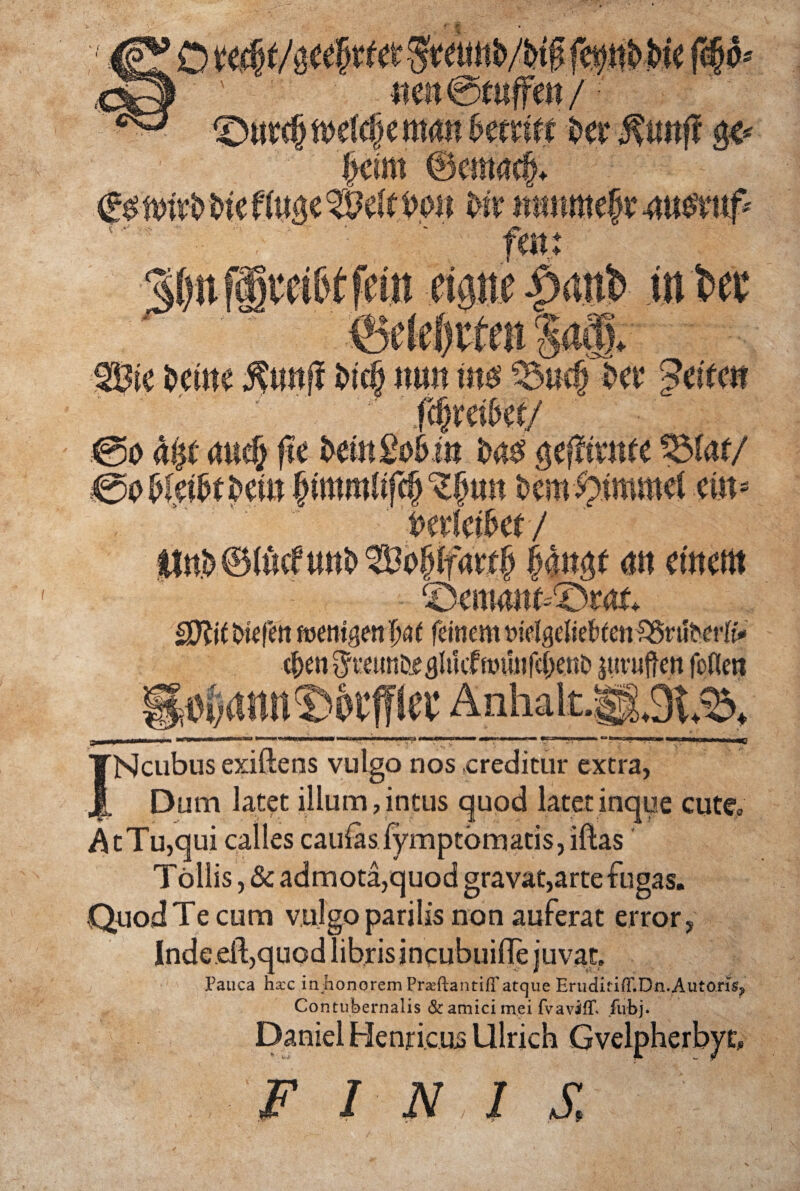 SO recht/geehrter Freund/diß seynd die schö-
nen Stuffen/
Durch welche man betritt der Kunst ge-
heim Gemach.
Es wird die kluge Welt von dir nunmehr außruf-
fen:
Ihn schreibt sein eigne Hand in der
Gelehrten Fach.
Wie deine Kunst dich nun ins Buch der Zeiten
schreibet/
So äßt auch sie dein Lob in das gestirnte Blat/
So bleibt dein himmlisch Thun dem Himmel ein-
verleibet/
Und Glück und Wohlfarth hängt an einem
Demant-Drat.
Mit diesen wenigen hat seinem vielgeliebten Brüderli-
chen Freunde glückwünschend zuruffen sollen
Johann Dörffler Anhalt. M.R.B.
INcubus existens vulgo nos creditur extra,
Dum latet illum, intus quod latet inque cute.
At Tu, qui calles causas symptomatis, istas
Tollis, & admotâ, quod gravat, arte fugas.
Quod Te cum vulgo parilis non auferat error,
Inde est, quod libris incubuisse juvat.
Pauca hæc in honorem Præstantiss atque Eruditiss. Dn. Autoris,
Contubernalis & amici mei svaviss. subj.
Daniel Henricus Ulrich Gvelpherbyt.
FINIS.